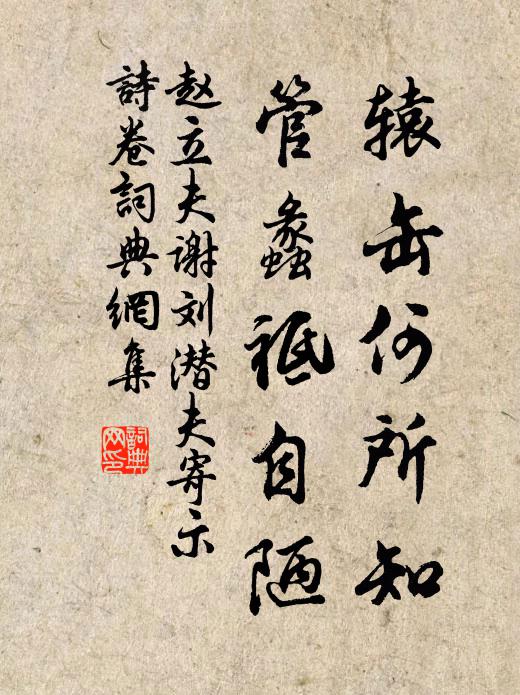 辕缶何所知
管蠡祗自陋
赵立夫谢刘潜夫寄示
詩卷詞典網集
詞典
网印